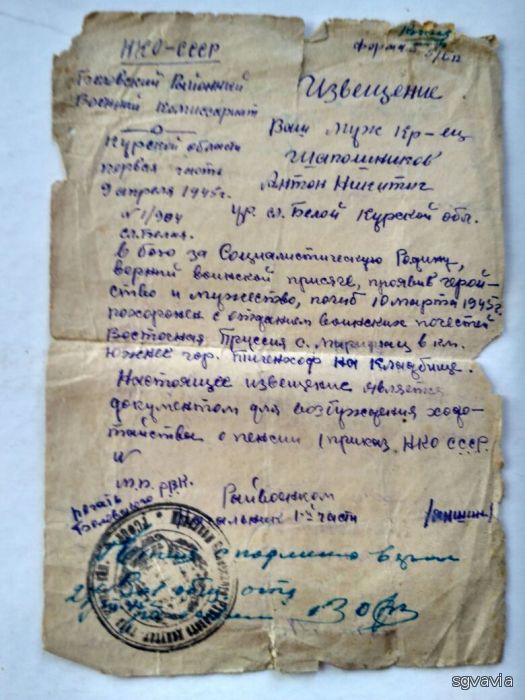 Копия
НКО-СССР
форма
Беловский Районный
Военный Комиссариат
Извещение
Курской области
первая часть
9 апреля 1945г.
N 1/904
сл. Белая.
Ваш муж кр-ец
Шапошников
Антон Никитич
ур. сл. Белой Курской обл.
в бою за Социалистическую Родину,
верный воинской присяге, проявив герой-
ство и мужество, погиб 10 марта 1945г.
похоронен с отданием воинских почестей
Восточная Пруссия с. в км.
южнее гор. Тигенхоф на Кладбище.
Настоящее извещение является
документом для возбуждения ходо-
тайства о пенсии (приказ НКО СССР.
N
м.п. РВК.
печать
Беловского
Райвоенком
Начальник 1й части
с подлинно верна
sgvavia